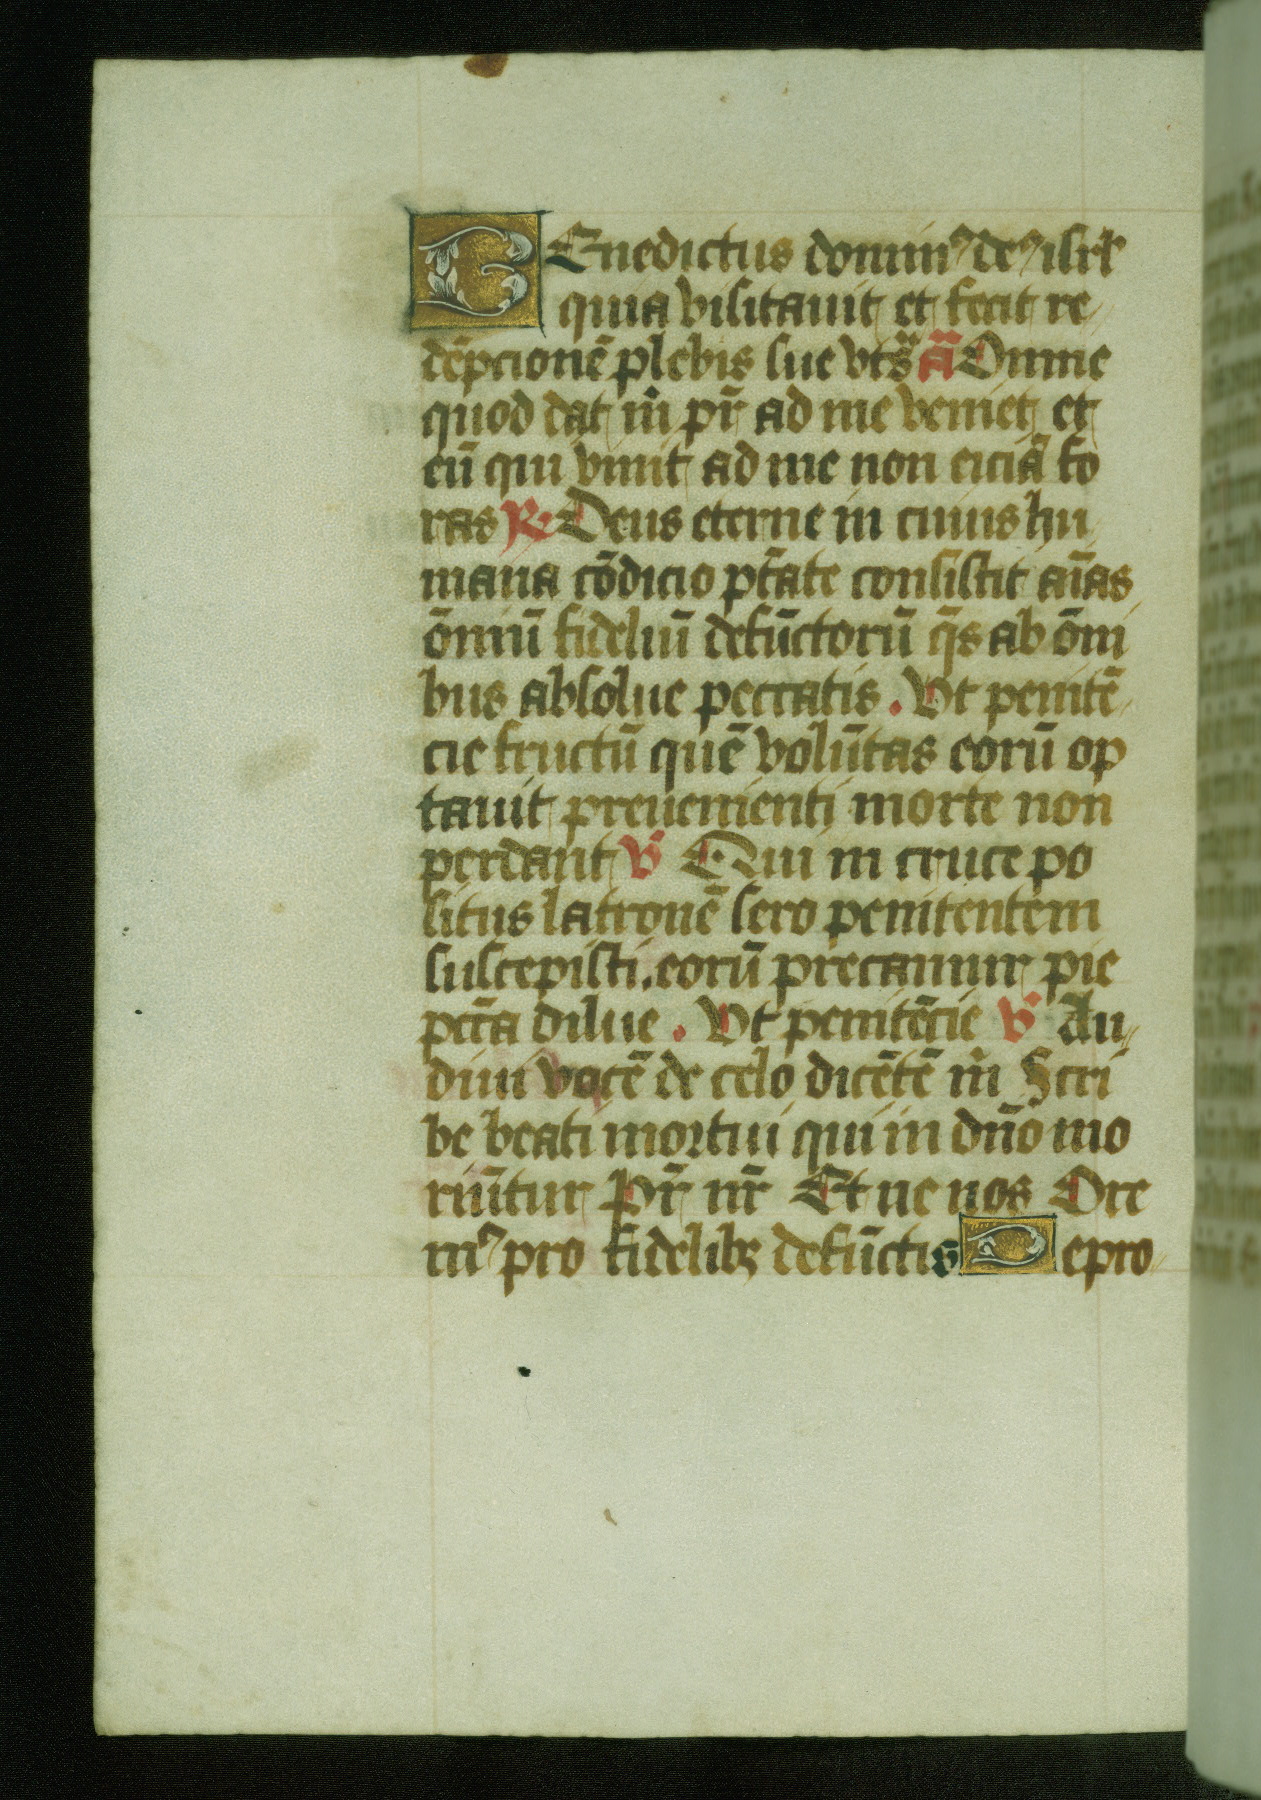 BEnedictus domin⁹ de⁹ isrl̄
quia visitauit et fecit re
dēpcionē plebis sue vts̄ ā Omne
quod dat m̄ pr̄ ad me veniet et
eū qui vīnit ad me non eiciā fo
ras R̸ Deus eterne in cuius hu
mana cōdicio ptāte consistit aīas
ōniū fideliū defūctorū q̄s ab ōni
bus absolue peccatis . Vt penitē
cie fructū quē volūtas eorū op
tauit preuenienti morte non
perdant V̄ Qui in cruce po
situs latronē sero penitentem
suscepisti . eorū precamur pie
pctā dilue . Vt penitēcie V̄ Au
diui vocē de celo dicētē m̄ Scri
be beati mortui qui in dn̄o mo
riūtur Pr̄ nr̄ Et ne nos Ore
m⁹ pro fidelibꝫ defūctis Depro